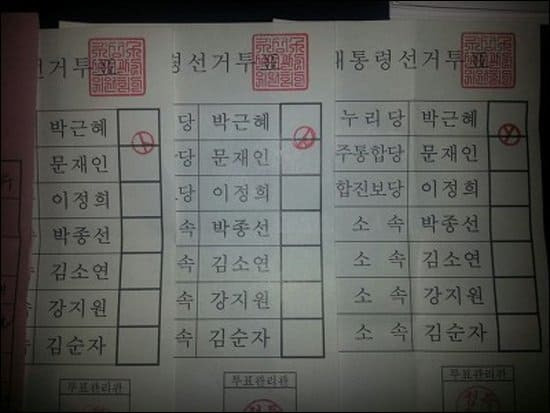 선거투표
당 박근혜
박근혜
문재인
이정희
박종선
김소연
강지원
김순자
투표관리관
령선거투표
당 박근혜
당 문재인
당 이정희
속 박종선
속 김소연
속 강지원
속 김순자
투표관리관
대통령선거투표
누리당 박근혜
주통합당 문재인
합진보당 이정희
소속 박종선
소속 김소연
소속 강지원
소속 김순자
투표관리관